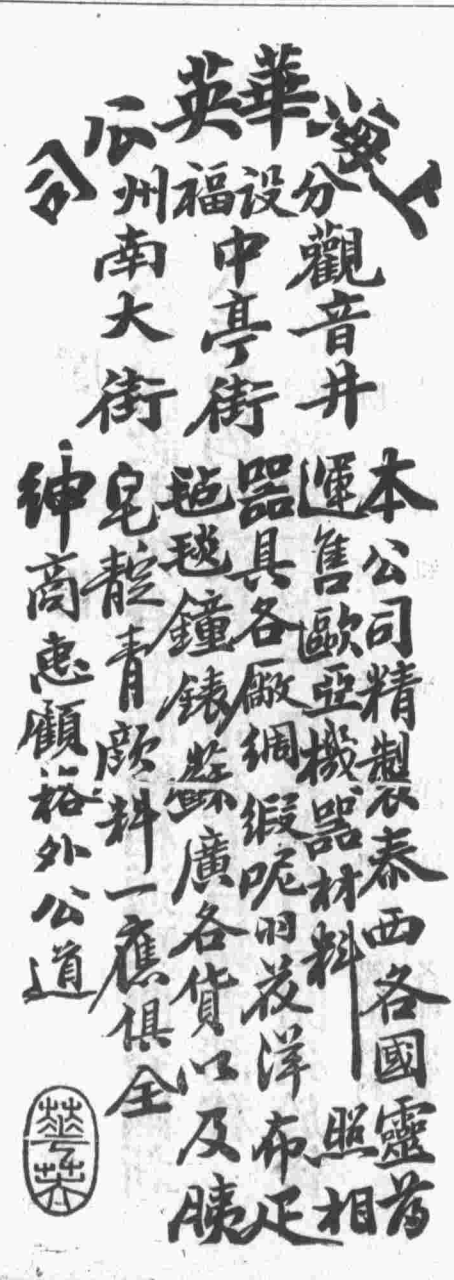 上海華英公司
分設福州
觀音井
中亭街
南大街
本公司精製泰西各國靈葯
運售歐亞機器材料照相
器具各廠綢緞呢羽花洋布疋
毡毯鐘錶蘇廣各貨以及胰
皂靛青顔料一應俱全
紳商惠顧格外公道
華英